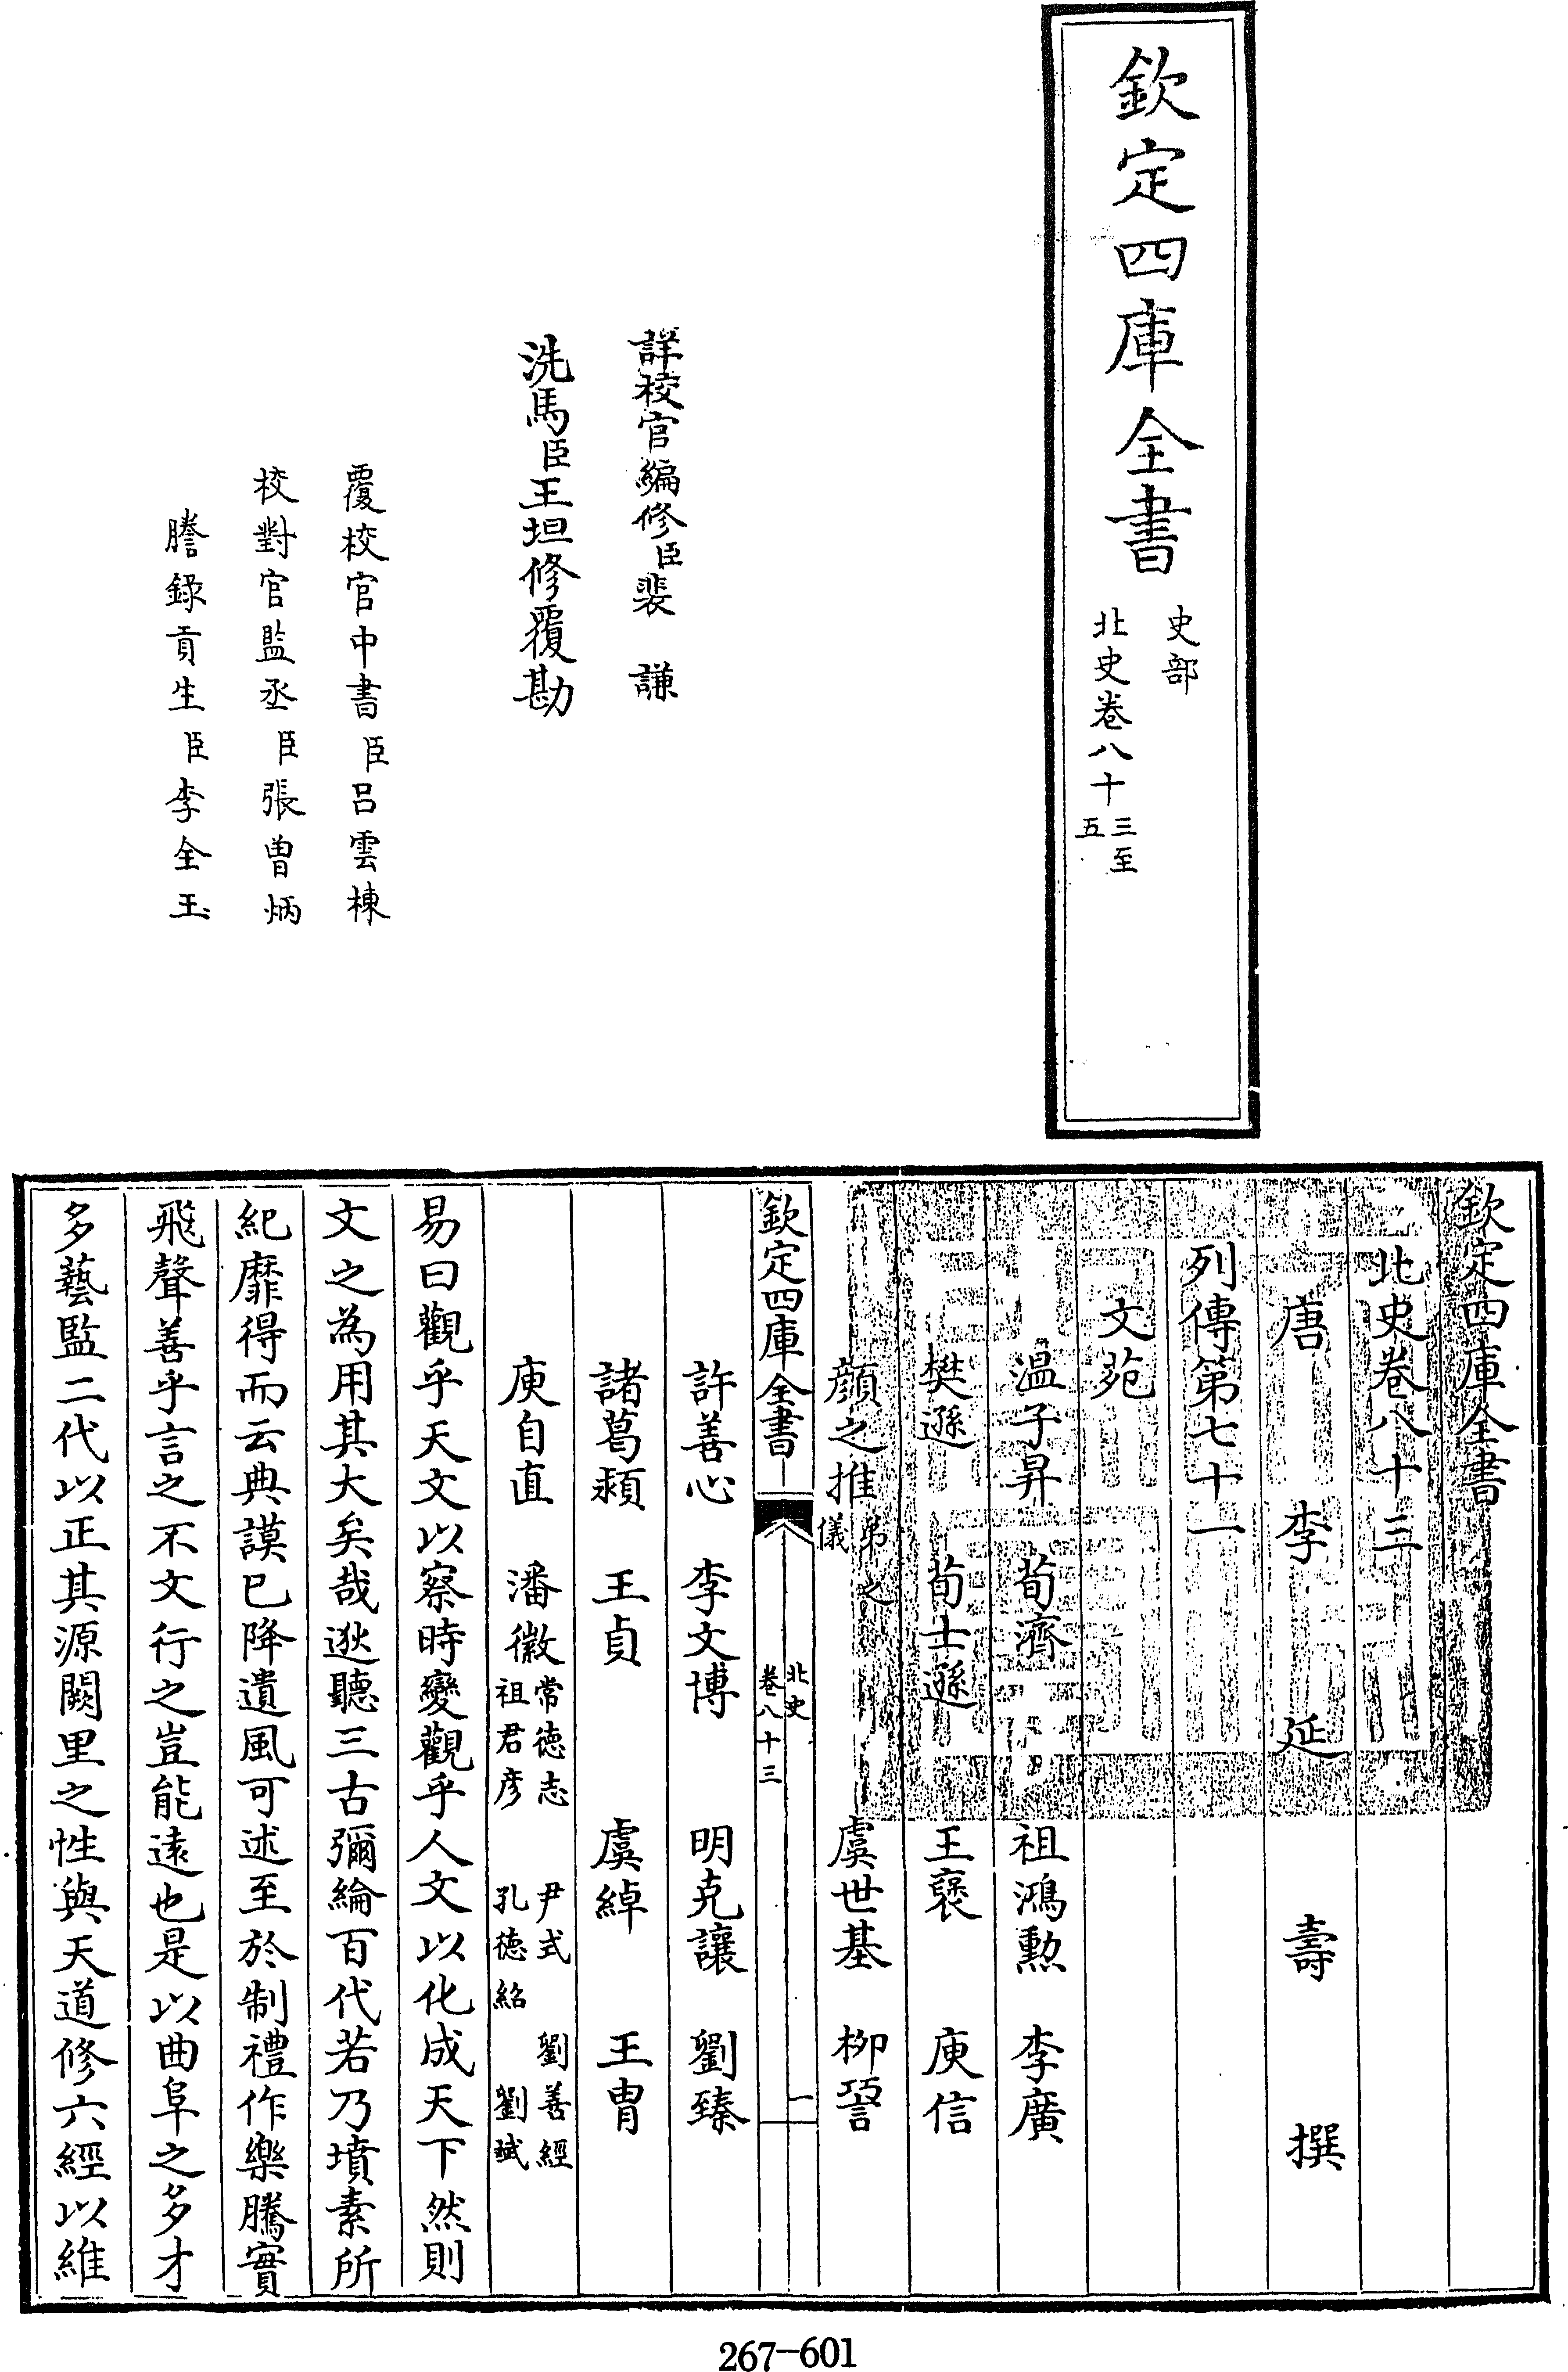 欽定四庫全書
史部
北史卷八十三至
五
詳校官編修臣裴謙
洗馬臣王坦修覆勘
覆校官中書臣呂雲棟
校對官監丞臣張曾炳
謄錄貢生臣李全玉
欽定四庫全書
北史卷八十三
唐 李 延 壽 撰
列傳第七十一
文苑
溫子昇 荀濟 祖鴻勲 李廣
樊遜 荀士遜 王褒 庾信
顔之推弟之儀 虞世基 柳䛒
欽定四庫全書
北史
卷八十三
一
許善心 李文博 明克讓 劉臻
諸葛潁 王貞 虞綽 王胄
庾自直 潘徽常德志 尹式 劉善經
祖君彦 孔德紹 劉斌
易曰觀乎天文以察時變觀乎人文以化成天下然則
文之為用其大矣哉逖聽三古彌綸百代若乃墳素所
紀靡得而云典謨已降遺風可述至於制禮作樂騰實
飛聲善乎言之不文行之豈能遠也是以曲阜之多才
多藝監二代以正其源闕里之性與天道修六經以維
267-601